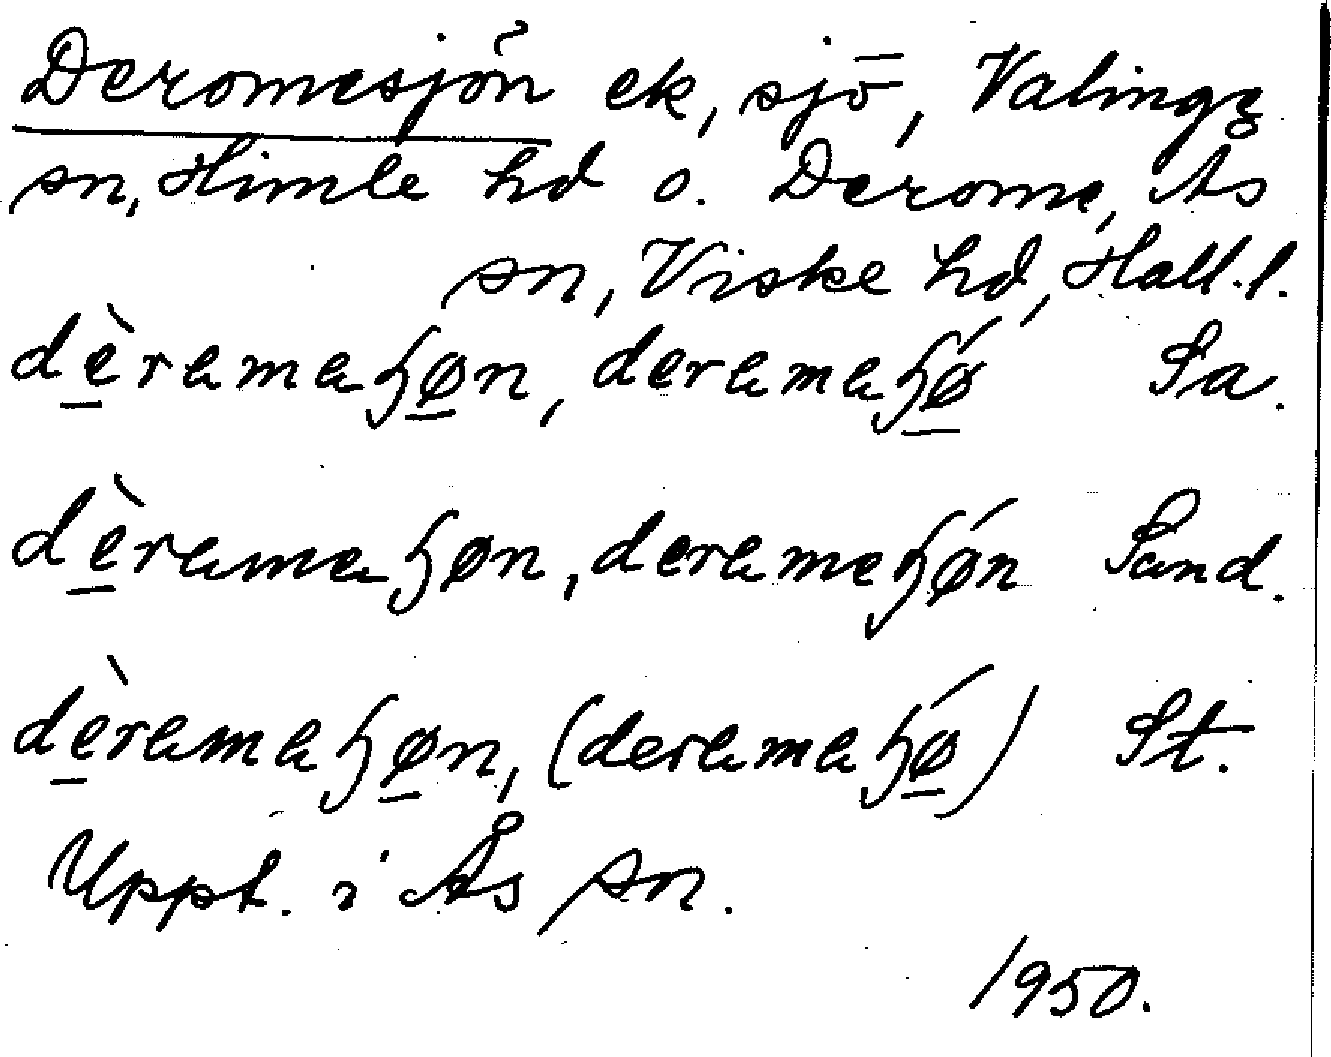 Deromesjön ek, sjö, Valinge
sn, Himle hd o. Derome, Ås
sn, Viske hd, Hall. l.
dè̱ramaɧø̱n, deramaɧǿ̱ Sa.
dè̱ramaɧøn, derameɧǿn Sand.
dè̱ramaɧø̱n, (deramaɧǿ̱) St.
Uppt. i Ås sn.
1950.